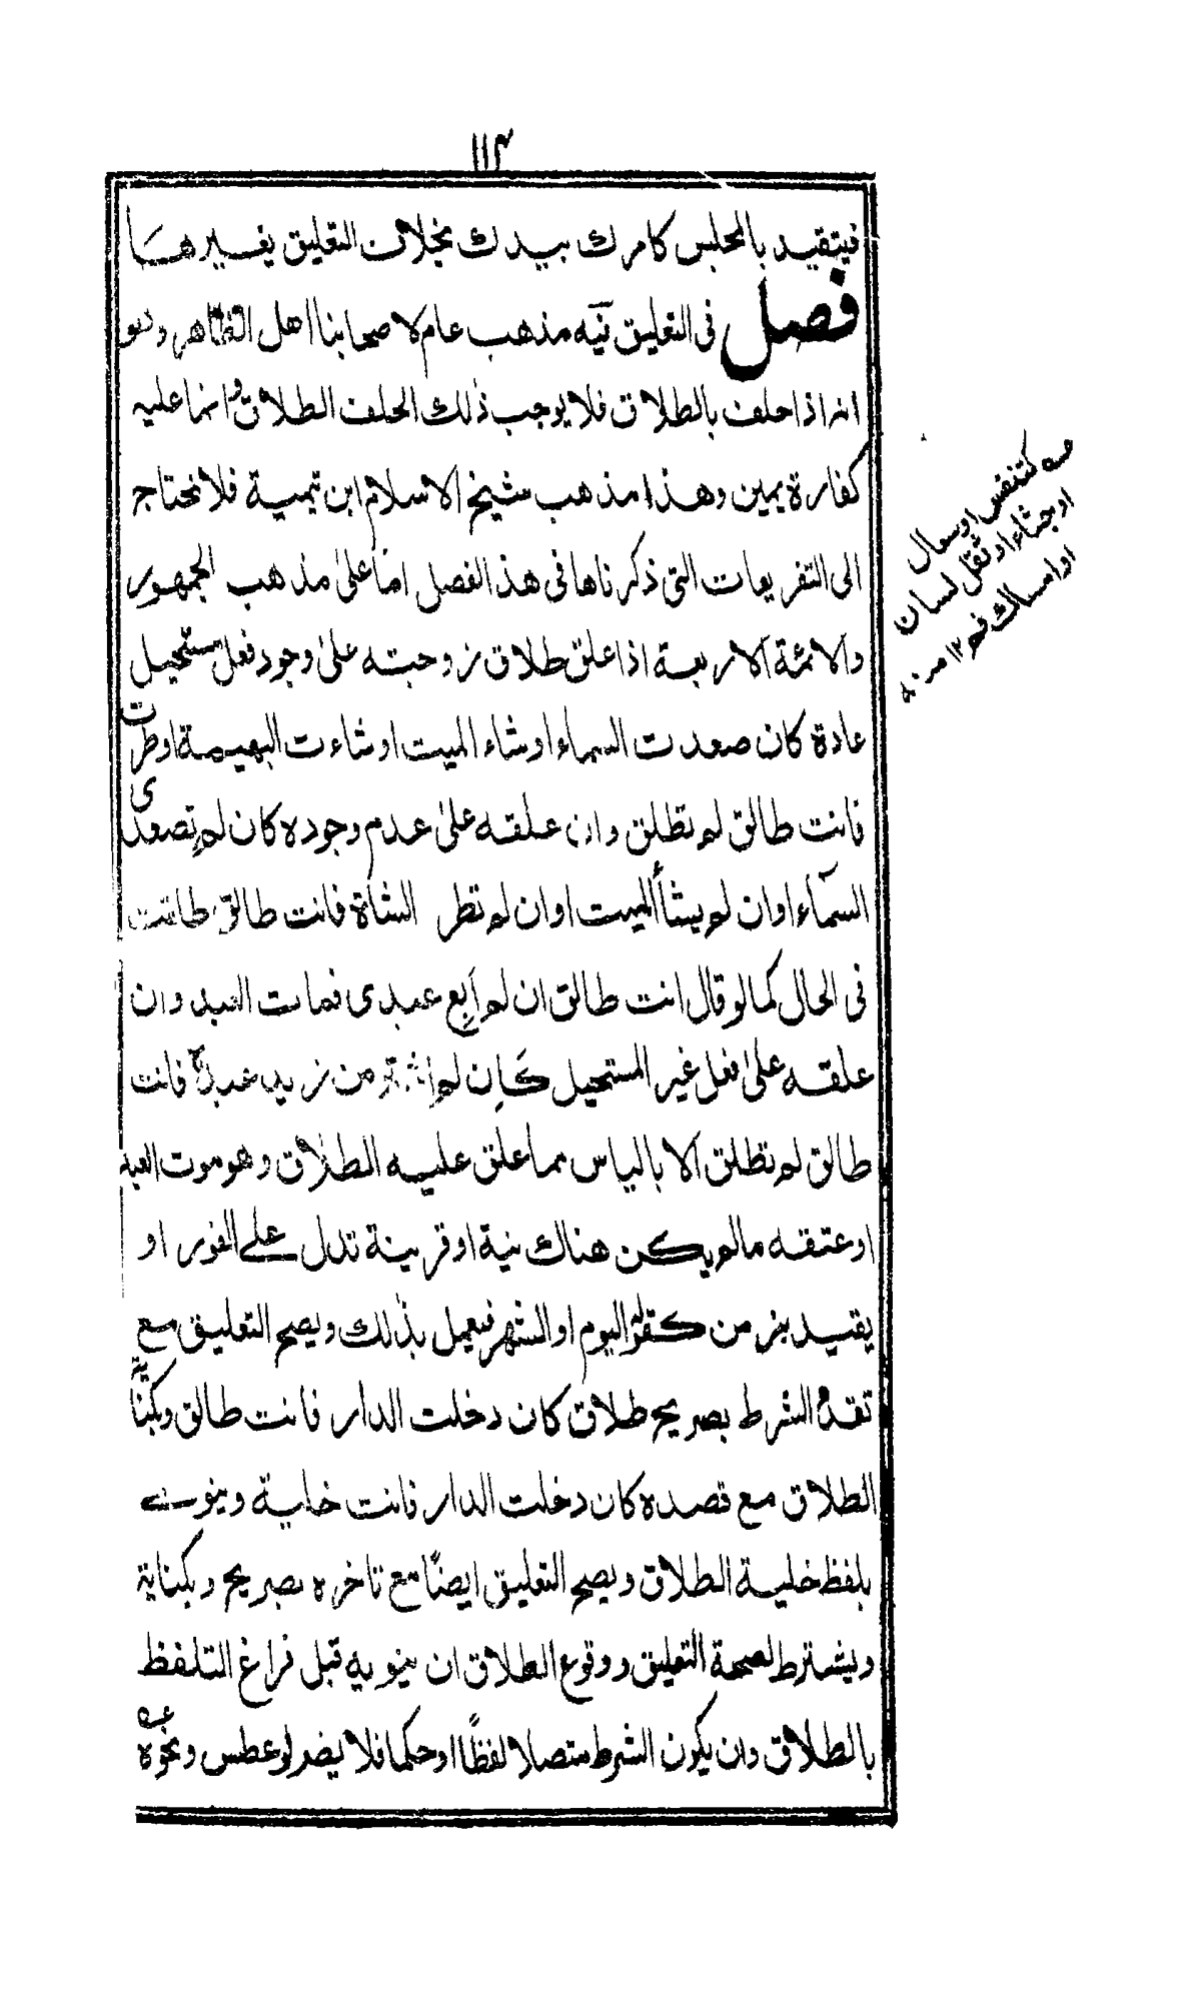 ١١٣
فيتقيد بالمجلس كامرك بيدك بخلاف التعليق بغيرها
فصل فى التعليق فيه مذهب عام لاصحابنا اهل الظاهر وهو
انه اذا حلف بالطلاق فلا يوجب ذلك الحلف الطلاق وانما عليه
كفارة يمين وهذا مذهب شيخ الاسلام ابن تيمية فلا نحتاج
الى التفريعات التى ذكرناها فى هذا الفصل اما على مذهب الجمهور
والائمة الاربعة اذا علق طلاق زوجته على وجود فعل مستحيل
عادة كان صعدت السماء او شاء الميت او شاءت البهيمة او طرت
فانت طالق لم تطلق وان علقه على عدم وجوده كان لم تصعدى
السمآء او ان لم يشأ الميت او ان لم تطر الشاة فانت طالق طلقت
فى الحال كما لو قال انت طالق ان لم ابع عبدى فمات العبد وان
علقه على فعل غير المستحيل كان لم اشتر من زيد عبده فانت
طالق لم تطلق الا بالياس مما علق عليه الطلاق وهو موت العبد
او عتقه مالم يكن هناك نية او قرينة تدل على الفور او
يقيد بزمن كقوله اليوم او الشهر فيعمل بذلك ويصح التعليق مع
تقدم الشرط بصريح طلاق كان دخلت الدار فانت طالق وبكناية
الطلاق مع قصده كان دخلت الدار فانت خلية وينوى
بلفظ خلية الطلاق ويصح التعليق ايضًا مع تاخره بصريح وبكناية
ويشترط لصحة التعليق ووقوع الطلاق ان ينويه قبل فراغ التلفظ
بالطلاق وان يكون الشرط متصلا لفظًا او حكما فلا يضر لو عطس ونحوه
كتنفس او سعال
او جشاء او ثقل لسان
او امساك فم ١٢ منه